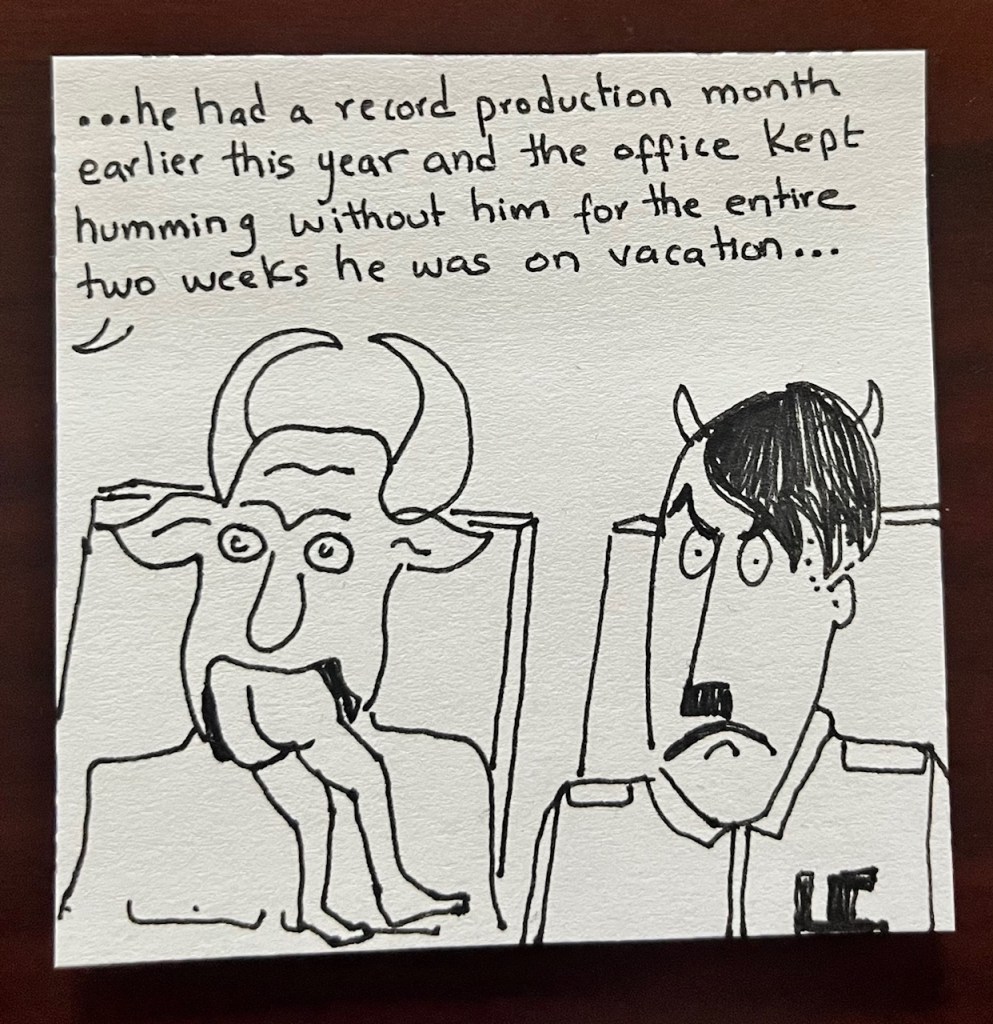 ...he had a record production month
earlier this year and the office kept
humming without him for the entire
two weeks he was on vacation...